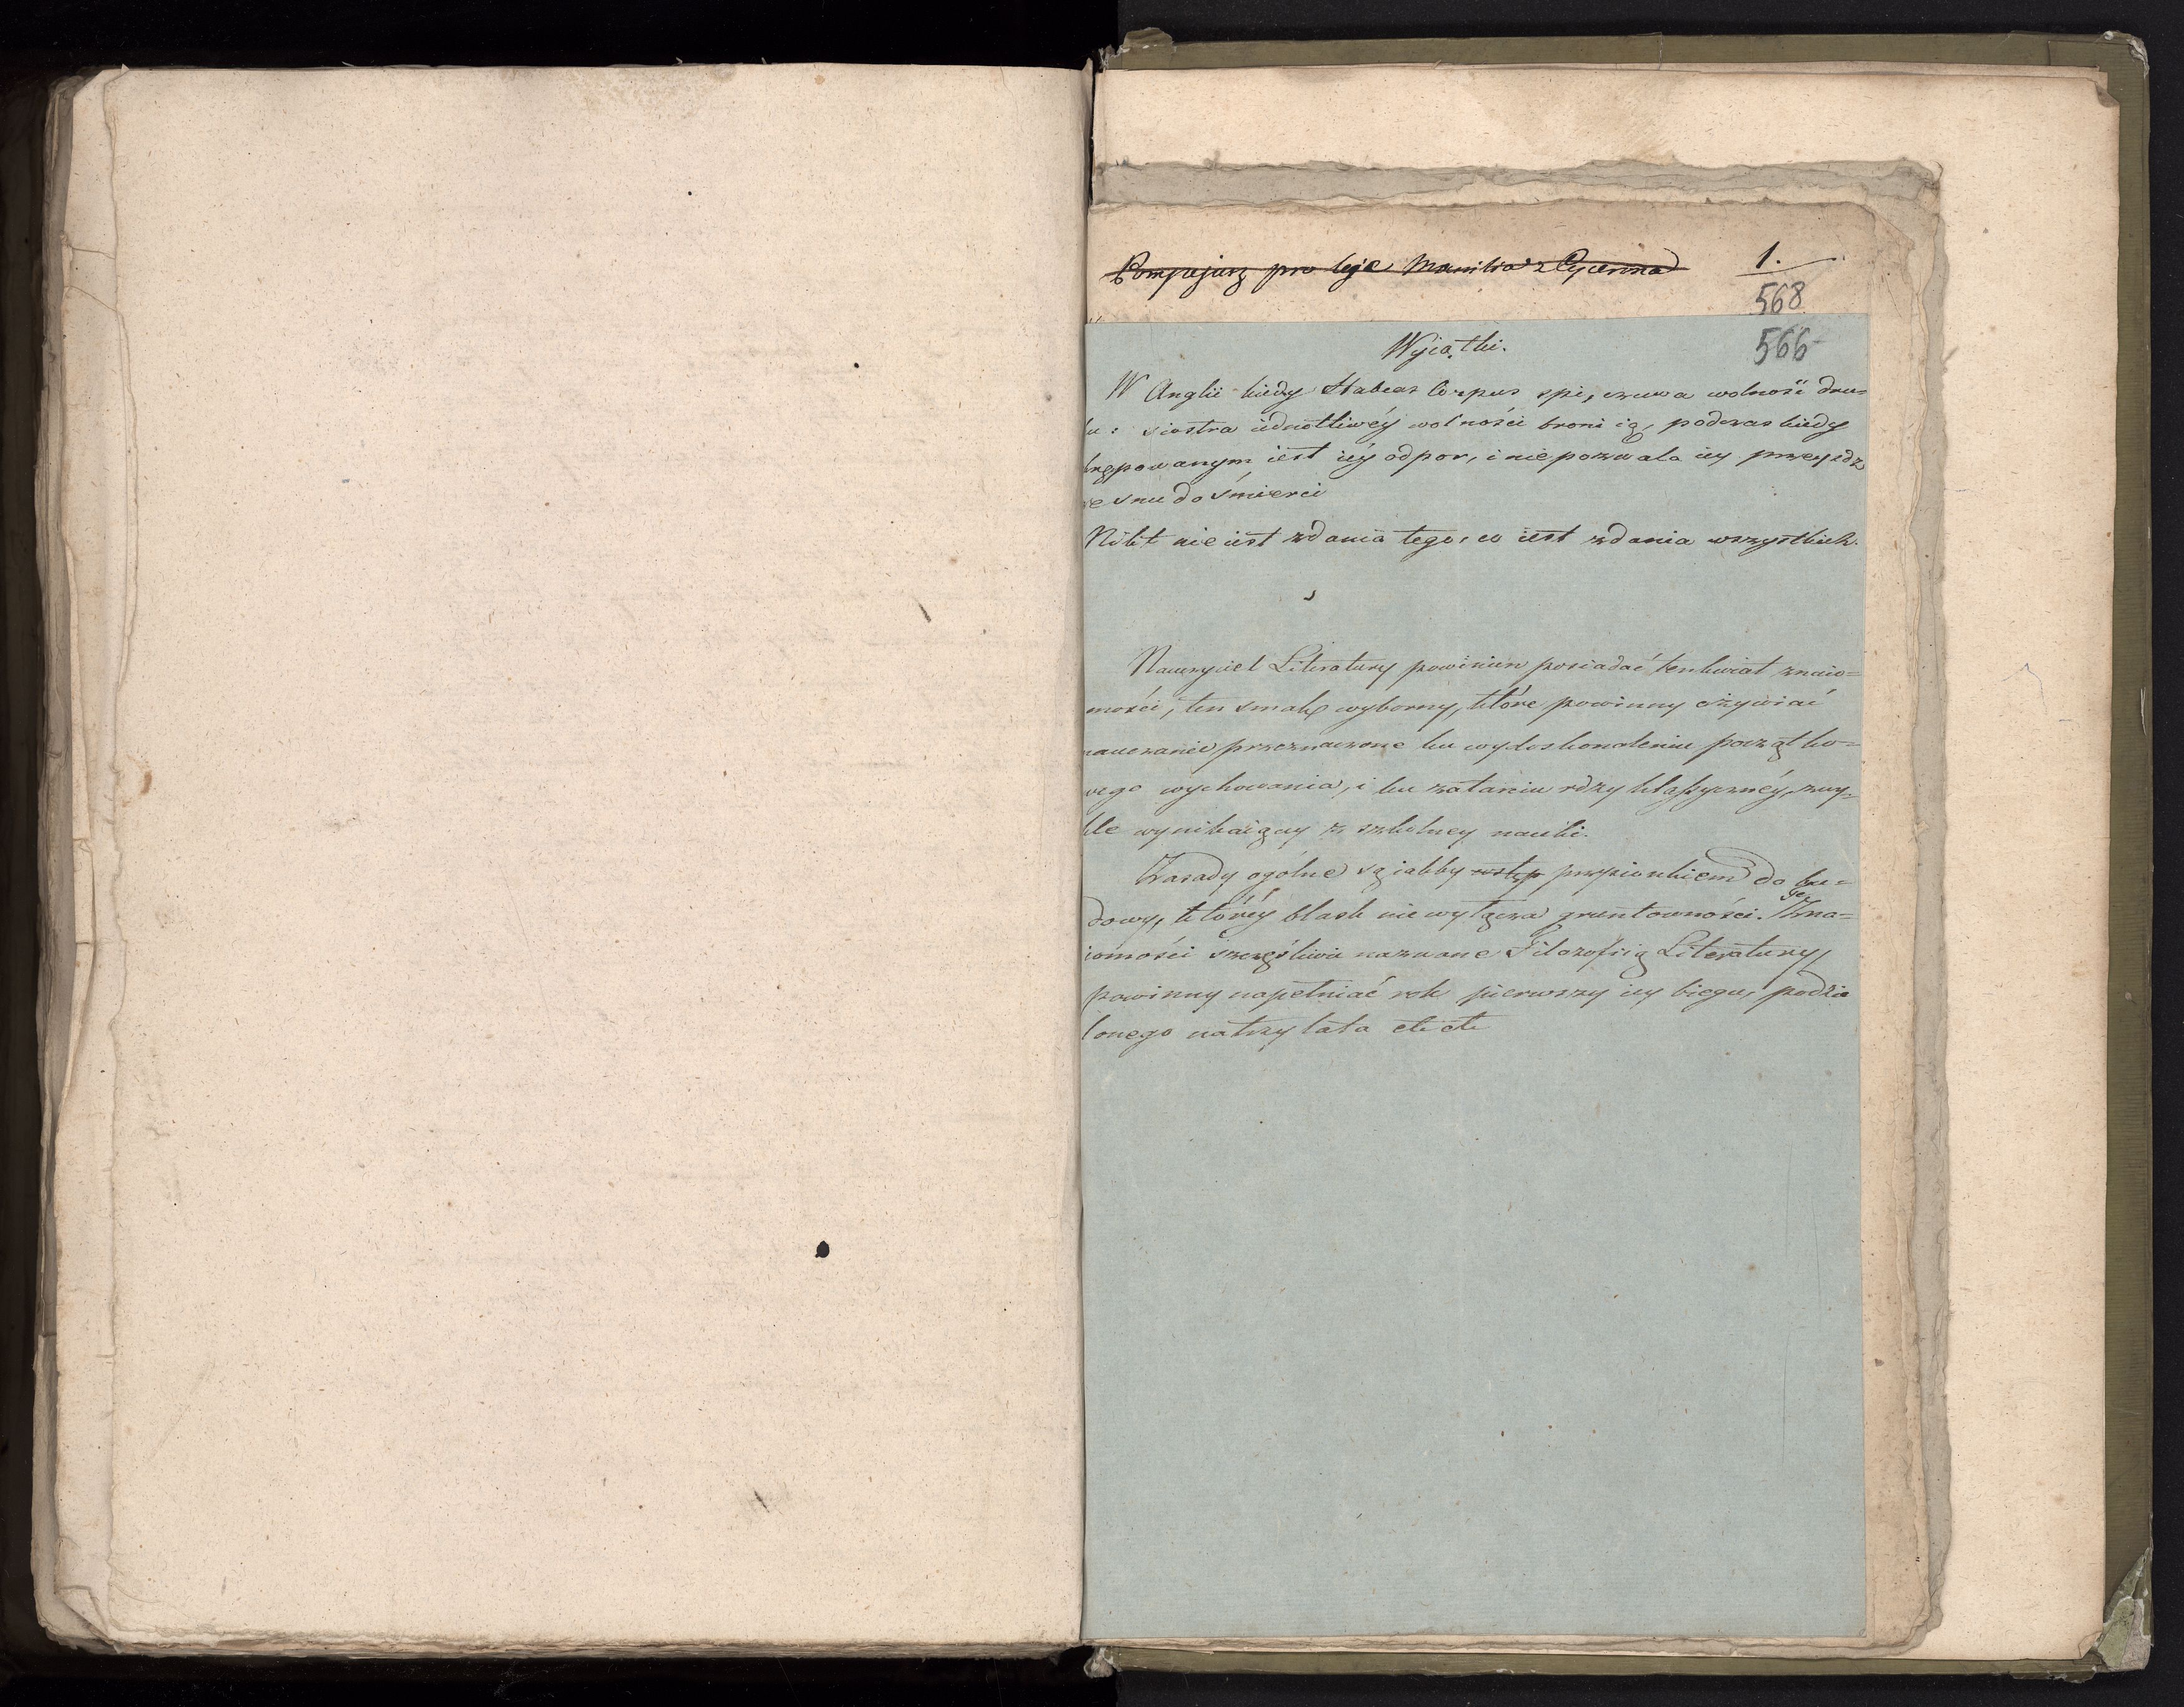 Pompejusz pro lege Manilia z Cycerona 1.
568
566
Wyiątki.
W Anglii kiedy Habeas Corpus spi, czuwa wolność dru=
ku: siostra iednotliwéy wolności broni ią, podczas kiedy
krępowanym iest iéy odpor, i nie pozwala iey przeyśdź
ze snu do śmierci
Nikt nie iest zdania tego, co iest zdania wszystkich.
Nauczyciel Literatury powinien posiadać ten kwiat znaio=
mości, ten smak wyborny, które powinny ożywiać
nauczanie przeznaczone ku wydoskonaleniu początko=
wego wychowania, i ku zatarciu rdzy klassycznéy, zwy=
kle wynikaiącey z szkolney nauki.
Zasady ogólne są iakby wstęp przysionkiem do bu=
dowy, któréy blask nie wyłącza gruntowności. Te Zna=
iomości szczęśliwie nazwane Filozofiią Literatury,
powinny napełniać rok pierwszy iey biegu, podzie
lonego na trzy lata etc etc